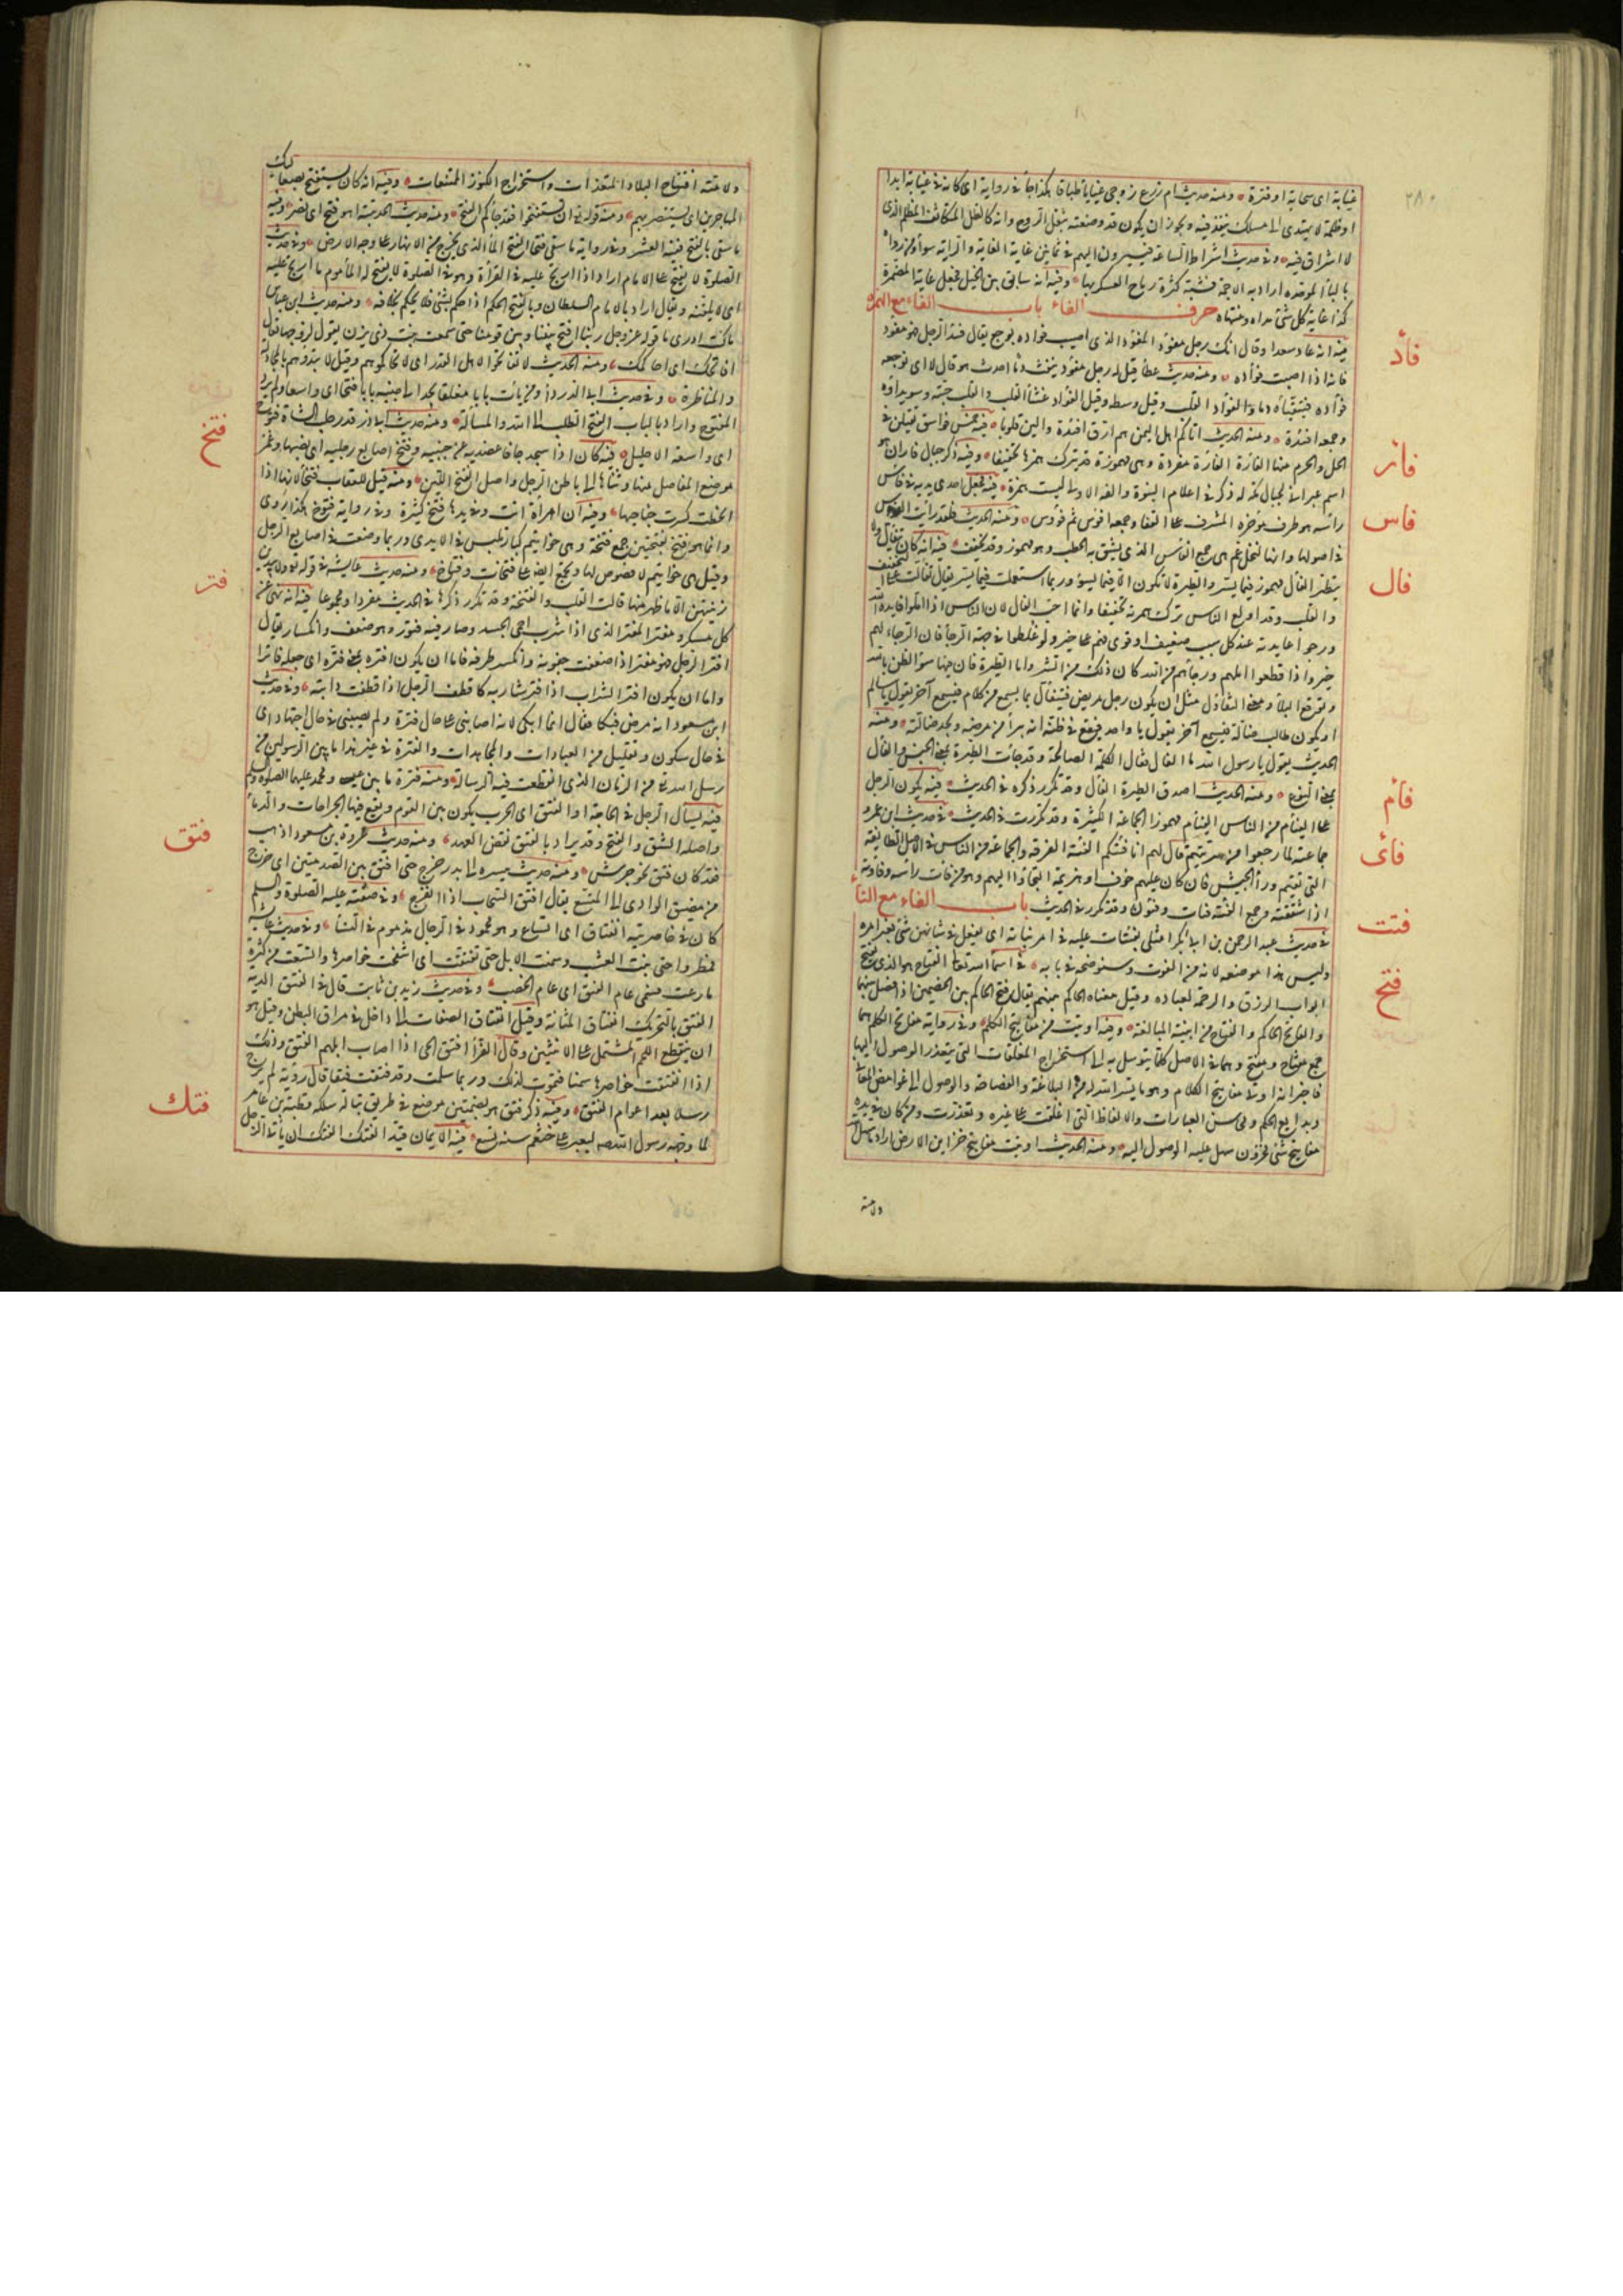 غيابة اى سحابة او قترة ومنه حديث ام زرع زوجى غياياء طباقاء هكذا جاء فى رواية اى كانه فى غيابة ابدا
او ظلمة لا يهتدى الى مسلك ينفذ فيه ويجوز ان يكون قد وصفته بثقل الروح وانه كالظل المتكاثف المظلم الذى
لا اشراق فيه وفى حديث اشراط الساعة فيسيرون اليهم فى ثمانين غاية الغاية والراية سواء ومن رواه
بالباء الموحدة اراد به الاجمة فشبه كثرة رماح العسكر بها وفيه انه سابق بين الخيل فجعل غاية المضمرة
كذا غاية كل شئ مداه ومنتهاه حرف الفاء باب الفاء مع الهمزة
فأد
فيه انه عاد سعدا وقال انك رجل مفؤد المفؤد الذى اصيب فواده بوجع يقال فئد الرجل فهو مفؤد
فادته اذا اصبت فؤاده ومنه حديث عطا قيل له رجل مفؤد ينفث دما احدث هو قال لا اى يوجعه
فؤاده فيتقيأ دما والفؤاد القلب وقيل وسطه وقيل الفؤاد غشاء القلب والقلب حبته وسويداؤه
وجمعه افئدة ومنه الحديث اتاكم اهل اليمن هم ارق افئدة والين قلوبا
فار
فيه خمس فواسق يقتلن فى
الحل والحرم منها الفارة الفارة مفردة وهى مهموزة وقد يترك همزها تخفيفا وفيه ذكر جبال فاران هو
اسم عبرانى لجبال مكة له ذكر فى اعلام النبوة والفه الاولى ليست همزة
فاس
فيه فجعل احدى يديه فى فاس
راسه هو طرف مؤخره المشرف على القفا وجمعه افوس ثم فؤوس ومنه الحديث فلقد رايت الفؤس
فى اصولها وانها لنخل عم هى جمع الفاس الذى يشق به الحطب وهو مهموز وقد يخفف
فال
فيه انه كان يتفال ولا
يتطير الفأل مهموز فيما يسر ويسوء والطيرة لا تكون الا فيما يسوء وربما استعملت فيما يسر يقال تفالت على التخفيف
والقلب وقد اولع الناس بترك همزته تخفيفا وانما احب الفال لان الناس اذا املوا فايدة الله
ورجوا عايدته عند كل سبب ضعيف او قوى فهم على خير ولو غلطوا فى جهة الرجا فان الرجاء لهم
خير واذا قطعوا املهم ورجاءهم من الله كان ذلك من الشر واما الطيرة فان فيها سوء الظن بالله
وتوقع البلا ومعنى التفاؤل مثل ان يكون رجل مريض فيتفأل بما يسمع من كلام فيسمع آخر يقول يا سالم
او يكون طالب ضالة فيسمع آخر يقول يا واجد فيقع فى ظنه انه يبرأ من مرضه ويجد ضالته ومنه
الحديث يقول يا رسول الله ما الفال فقال الكلمة الصالحة وقد جائت الطيرة بمعنى الجنس والفأل
بمعنى النوع ومنه الحديث اصدق الطيرة الفال وقد تكرر ذكره فى الحديث
فأم
فيه يكون الرجل
على الفئام من الناس الفئام مهموز الجماعة الكثيرة وقد تكررت فى الحديث
فأى
فى حديث ابن عمرو
جماعته لما رجعوا من سريتهم قال لهم انا فئتكم الفئة الفرقة والجماعة من الناس فى الاصل والطائفة
التى تقيم وراء الجيش فان كان عليهم خوف او هزيمة التجاؤا اليهم وهو من فأيت راسه وفأوته
اذا شققته وجمع الفئة فئات وفئون وقد تكرر فى الحديث باب الفاء مع التاء
فتت
فى حديث عبد الرحمن بن ابى بكر امثلى يفتات عليه فى امر بناته اى يفعل فى شانهن شئ بغير امره
وليس هذا موضعه لانه من الفوت وسنوضحه فى بابه
فتح
فى اسماء الله تعالى الفتاح هو الذى يفتح
ابواب الرزق والرحمة لعباده وقيل معناه الحاكم بينهم يقال فتح الحاكم بين الخصمين اذا فصل بينهما
والفاتح الحاكم والفتاح من ابنية المبالغة وفيه اوتيت مفاتيح الكلم وفى رواية مفاتح الكلم هما
جمع مفتاح ومفتح وهما فى الاصل كلما يتوسل به الى استخراج المغلقات التى يتعذر الوصول اليها
فاخبر انه اوتى مفاتيح الكلام وهو ما يسر الله له من البلاغة والفصاحة والوصول الى غوامض المعانى
وبدايع الحكم ومحاسن العبارات والالفاظ التى اغلقت على غيره وتعذرت ومن كان فى يده
مفاتيح شئ مخزون سهل عليه الوصول اليه ومنه الحديث اوتيت مفاتيح خزاين الارض اراد ما سهل
وله منه
له ولامته افتتاح البلاد المتعذرات واستخراج الكنوز الممتنعات وفيه انه كان يستفتح بصعاليك
المهاجرين اى يستنصر بهم ومنه قوله تعالى ان تستفتحوا فقد جاءكم الفتح ومنه حديث الحديبية اهو فتح اى نصر وفيه
ما سقى بالفتح ففيه العشر وفى رواية ما سقى فتحا الفتح الماء الذى يجرى من الانهار على وجه الارض وفى حديث
الصلوة لا يفتح على الامام اراد اذا ارتج عليه فى القراءة وهو فى الصلوة لا يفتح له المأموم ما ارتج عليه
اى لا يلقنه ويقال اراد بالامام السلطان وبالفتح الحكم اذا حكم بشئ فلا يحكم بخلافه ومنه حديث ابن عباس
ما كنت ادرى ما قوله عز وجل ربنا افتح بيننا وبين قومنا حتى سمعت بنت ذى يزن تقول لزوجها تعال
افاتحك اى احاكمك ومنه الحديث لا تفاتحوا اهل القدر اى لا تحاكموهم وقيل لا تبدؤهم بالمجادلة
والمناظرة وفى حديث ابى الدرداء ومن يأت بابا مغلقا يجد الى جنبه بابا فتحا اى واسعا ولم يرد
المفتوح واراد بالباب الفتح الطلب الى الله والمسالة ومنه حديث ابى ذر قدر حلب شاة فتوح
اى واسعة الاحليل
فتخ
فيه كان اذا سجد جافى عضديه عن جنبيه وفتخ اصابع رجليه اى نصبها وغمز
موضع المفاصل منها وثناها الى باطن الرجل واصل الفتخ اللين ومنه قيل للعقاب فتخاء لانها اذا
انحطت كسرت جناحها وفيه ان امراة اتت وفى يدها فتخ كثيرة وفى رواية فتوخ هكذا روى
وانما هو فتخ بفتحتين جمع فتخة وهى خواتيم كبار تلبس فى الايدى وربما وضعت فى اصابع الرجل
وقيل هى خواتيم لا فصوص لها وتجمع ايضا على فتخات وفتاخ ومنه حديث عايشة فى قوله تعالى ولا يبدين
زينتهن الا ما ظهر منها قالت القلب والفتخة وقد تكرر ذكرها فى الحديث مفردا ومجموعا
فتر
فيه انه نهى عن
كل مسكر ومفتر المفتر الذى اذا شرب احمى الجسد وصار فيه فتور وهو ضعف وانكسار يقال
افتر الرجل فهو مفتر اذا ضعفت جفونه وانكسر طرفه فاما ان يكون افتره بمعنى فتره اى جعله فاترا
واما ان يكون افتر الشراب اذا فتر شاربه كاقطف الرجل اذا قطفت دابته وفى حديث
ابن مسعود انه مرض فبكا فقال انما ابكى لانه اصابنى على حال فترة ولم يصبنى فى حال اجتهاد اى
فى حال سكون وتقليل من العبادات والمجاهدات والفترة فى غير هذا ما بين الرسولين من
رسل الله تعالى من الزمان الذى انقطعت فيه الرسالة ومنه فترة ما بين عيسى ومحمد عليهما الصلوة والسلم
فتق
فيه يسأل الرجل فى الجائحة او الفتق اى الحرب يكون بين القوم ويقع فيها الجراحات والدماء
واصله الشق والفتح وقد يراد بالفتق نقض العهد ومنه حديث عروة بن مسعود اذهب
فقد كان فتق نحو جرش ومنه حديث مسيره الى بدر خرج حتى افتق بين الصدمتين اى خرج
من مضيق الوادى الى المتسع يقال افتق السحاب اذا انفرج وفى صفته عليه الصلوة والسلم
كان فى خاصرتيه انفتاق اى اتساع وهو محمود فى الرجال مذموم فى النساء وفى حديث عائشة
فمطروا حتى نبت العشب وسمنت الابل حتى تفتقت اى انتفخت خواصرها واتسعت من كثرة
ما رعت فسمى عام الفتق اى عام الخصب وفى حديث زيد بن ثابت قال فى الفتق الدية
الفتق بالتحريك انفتاق المثانة وقيل انفتاق الصفاق الى داخل فى مراق البطن وقيل هو
ان ينقطع اللحم المشتمل على الانثيين وقال الفراء افتق الحى اذا اصاب ابلهم الفتق وذلك
اذا انفتقت خواصرها سمنا فتموت لذلك وربما سلمت وقد فتقت فتقا قال رؤبة لم ترج
رسلا بعد اعوام الفتق وفيه ذكر فتق هو بضمتين موضع فى طريق تبالة سلكه قطبة بن عامر
لما وجهه رسول الله صلعم ليغير على خثعم سنة تسع
فتك
فيه الايمان قيد الفتك الفتك ان يأتى الرجل